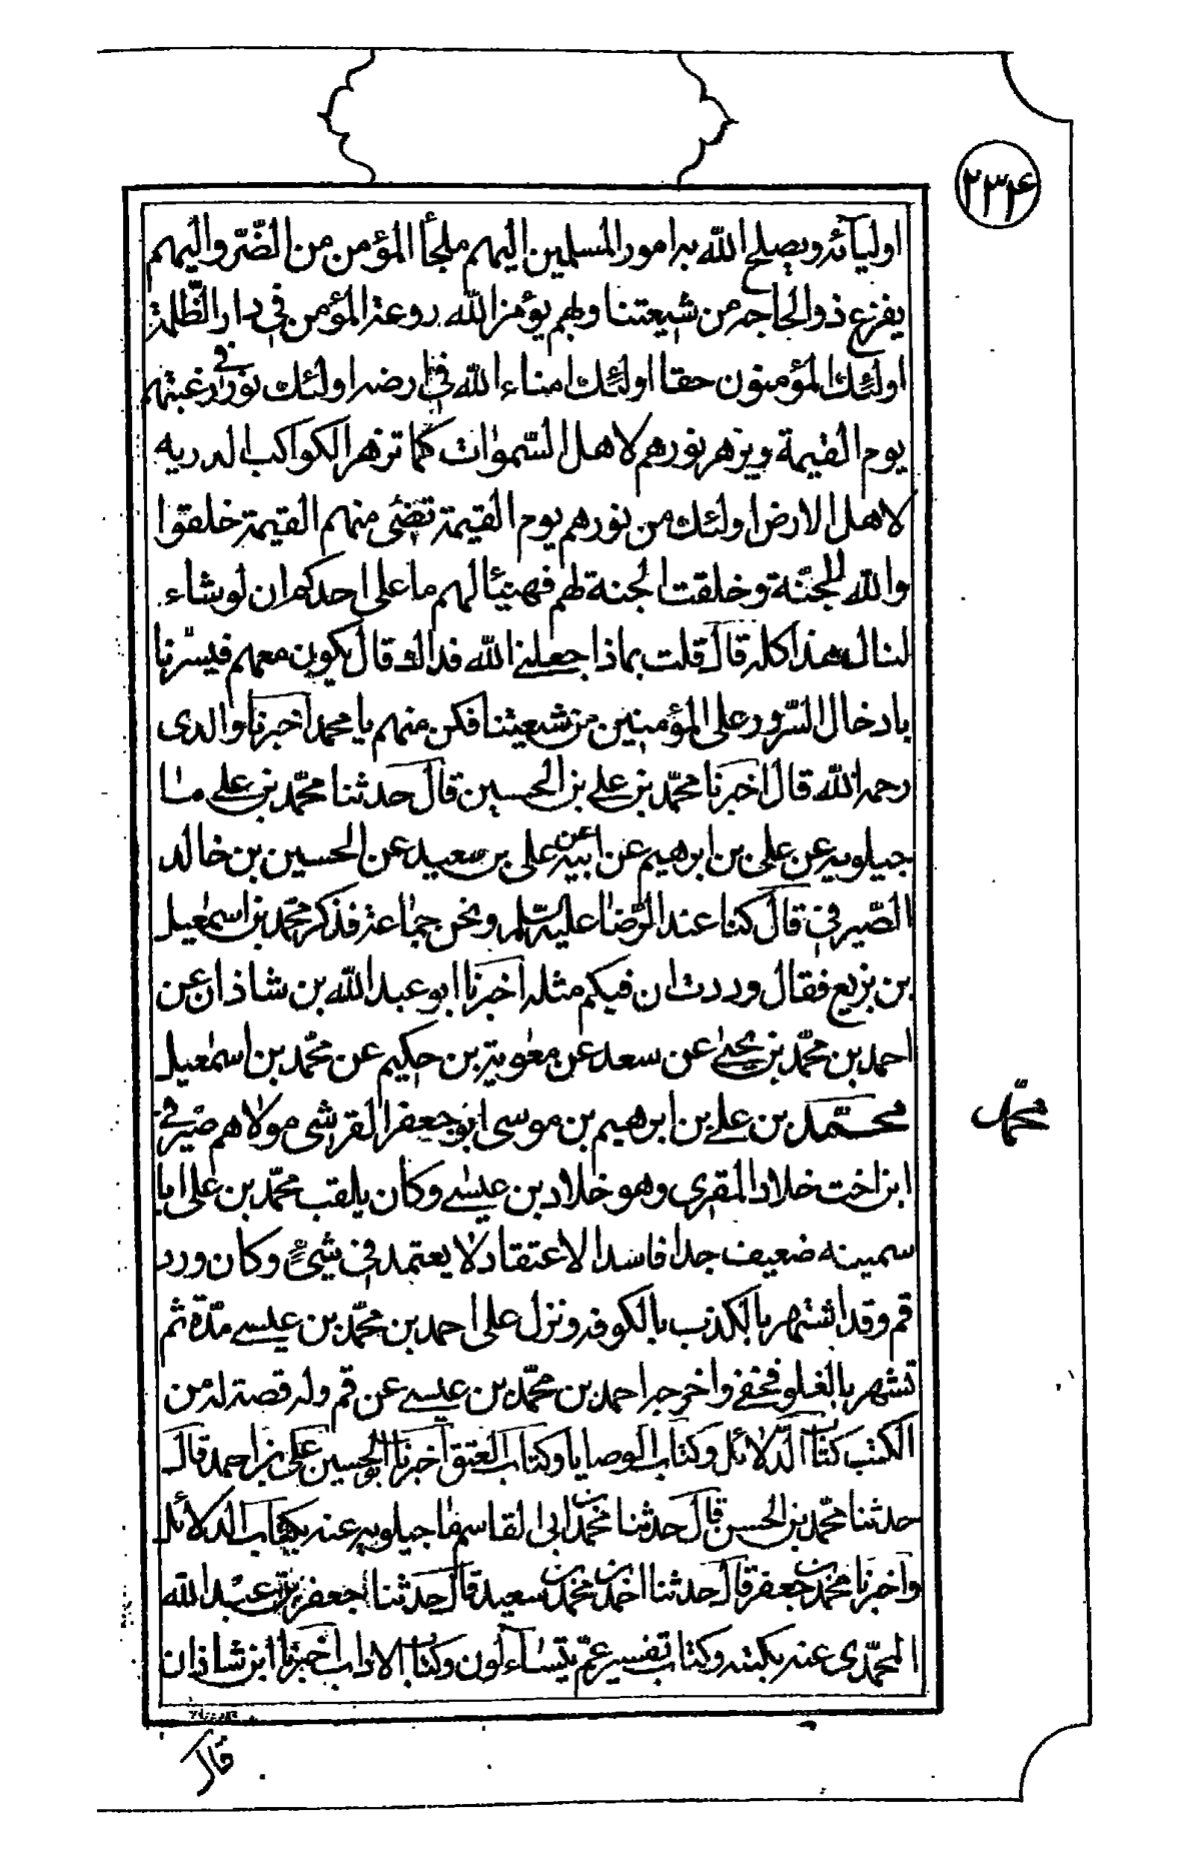 ۲۳۴
اوليآئه ويصلح الله به امور المسلمين اليهم ملجأ المؤمن من الضّرّ واليهم
يفزع ذوالحاجه من شيعتنا وبهم يؤمن الله روعة المؤمن فى دار الظّلمة
اولئك المؤمنون حقا اولئك امناء الله فى ارضه اولئك نور فى رعيتهم
يوم القيمة ويزهر نورهم لاهل السّموات كما تزهر الكواكب الدريه
لاهل الارض اولئك من نورهم يوم القيمة تضئ منهم القيمة خلقوا
والله للجنّة وخلقت الجنة لهم فهنيئا لهم ما على احدكم ان لو شاء
لنال هذا كله قال قلت بماذا جعلنى الله فداك قال يكون معهم فيسّرنا
بادخال السّرور على المؤمنين من شيعتنا فكن منهم يا محمد اخبرنا والدى
رحمه الله قال اخبرنا محمّد بن على بن الحسين قال حدثنا محمّد بن على ما
جيلويه عن على بن ابرهيم عن ابيه عن على بن معبد عن الحسين بن خالد
الصّيرفى قال كنا عند الرّضا عليه السّلم ونحن جماعة فذكر محمّد بن اسمعيل
بن بزيع فقال وددت ان فيكم مثله اخبرنا ابو عبد الله بن شاذان عن
احمد بن محمّد بن يحيى عن سعد عن معوية بن حكيم عن محمّد بن اسمعيل
محمّد بن على بن ابرهيم بن موسى ابو جعفر القرشى مولاهم صيرفى
محمّد
ابن اخت خلاد المقرى وهو خلاد بن عيسى وكان يلقب محمّد بن على ابا
سمينه ضعيف جدا فاسد الاعتقاد لا يعتمد فى شئ وكان ورد
قم وقد اشتهر بالكذب بالكوفه ونزل على احمد بن محمّد بن عيسى مدّة ثم
تشهر بالغلو فخفى واخرجه احمد بن محمّد بن عيسى عن قم وله قصة له من
الكتب كتاب الدّلائل وكتاب الوصايا وكتاب العتق اخبرنا ابو الحسين على بن احمد قال
حدثنا محمّد بن الحسن قال حدثنا محمّد بن ابى القاسم ماجيلويه عنه بكتاب الدلائل
واخبرنا محمد بن جعفر قال حدثنا احمد بن محمد بن سعيد قال حدثنا جعفر بن عبد الله
المحمّدى عنه بكتبه وكتاب تفسير عمّ يتساءلون وكتاب الاداب اخبرنا ابن شاذان
قال